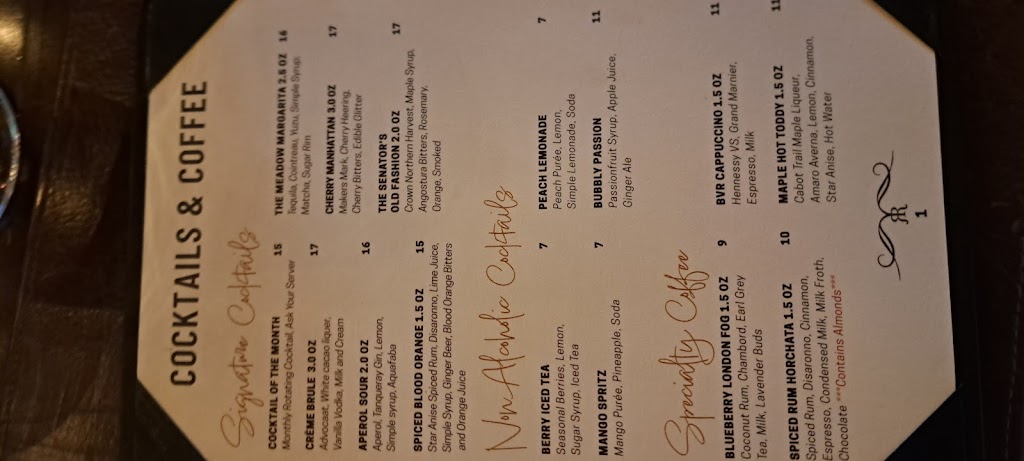 COCKTAILS & COFFEE
Signature Cocktails
COCKTAIL OF THE MONTH 15
Monthly Rotating Cocktail, Ask Your Server
CRÈME BRULE 3.0 OZ 17
Advocaat, White cacao liquer,
Vanilla Vodka, Milk and Cream
APEROL SOUR 2.0 OZ 16
Aperol, Tanqueray Gin, Lemon,
Simple syrup, Aquafaba
SPICED BLOOD ORANGE 1.5 OZ 15
Star Anise Spiced Rum, Disaronno, Lime Juice,
Simple Syrup, Ginger Beer, Blood Orange Bitters
and Orange Juice
THE MEADOW MARGARITA 2.5 OZ 16
Tequila, Cointreau, Yuzu, Simple Syrup,
Matcha, Sugar Rim
CHERRY MANHATTAN 3.0 OZ 17
Makers Mark, Cherry Heering,
Cherry Bitters, Edible Glitter
THE SENATOR'S
OLD FASHION 2.0 OZ 17
Crown Northern Harvest, Maple Syrup,
Angostura Bitters, Rosemary,
Orange, Smoked
Non Alcoholic Cocktails
BERRY ICED TEA 7
Seasonal Berries, Lemon,
Sugar Syrup, Iced Tea
MANGO SPRITZ 7
Mango Purée, Pineapple, Soda
PEACH LEMONADE 7
Peach Purée, Lemon,
Simple Lemonade, Soda
BUBBLY PASSION 11
Passionfruit Syrup, Apple Juice,
Ginger Ale
Specialty Coffee
BLUEBERRY LONDON FOG 1.5 OZ 9
Coconut Rum, Chambord, Earl Grey
Tea, Milk, Lavender Buds
SPICED RUM HORCHATA 1.5 OZ 10
Spiced Rum, Disaronno, Cinnamon,
Espresso, Condensed Milk, Milk Froth,
Chocolate ***Contains Almonds***
BVR CAPPUCCINO 1.5 OZ 11
Hennessy VS, Grand Marnier,
Espresso, Milk
MAPLE HOT TODDY 1.5 OZ 11
Cabot Trail Maple Liqueur,
Amaro Averna, Lemon, Cinnamon,
Star Anise, Hot Water
1